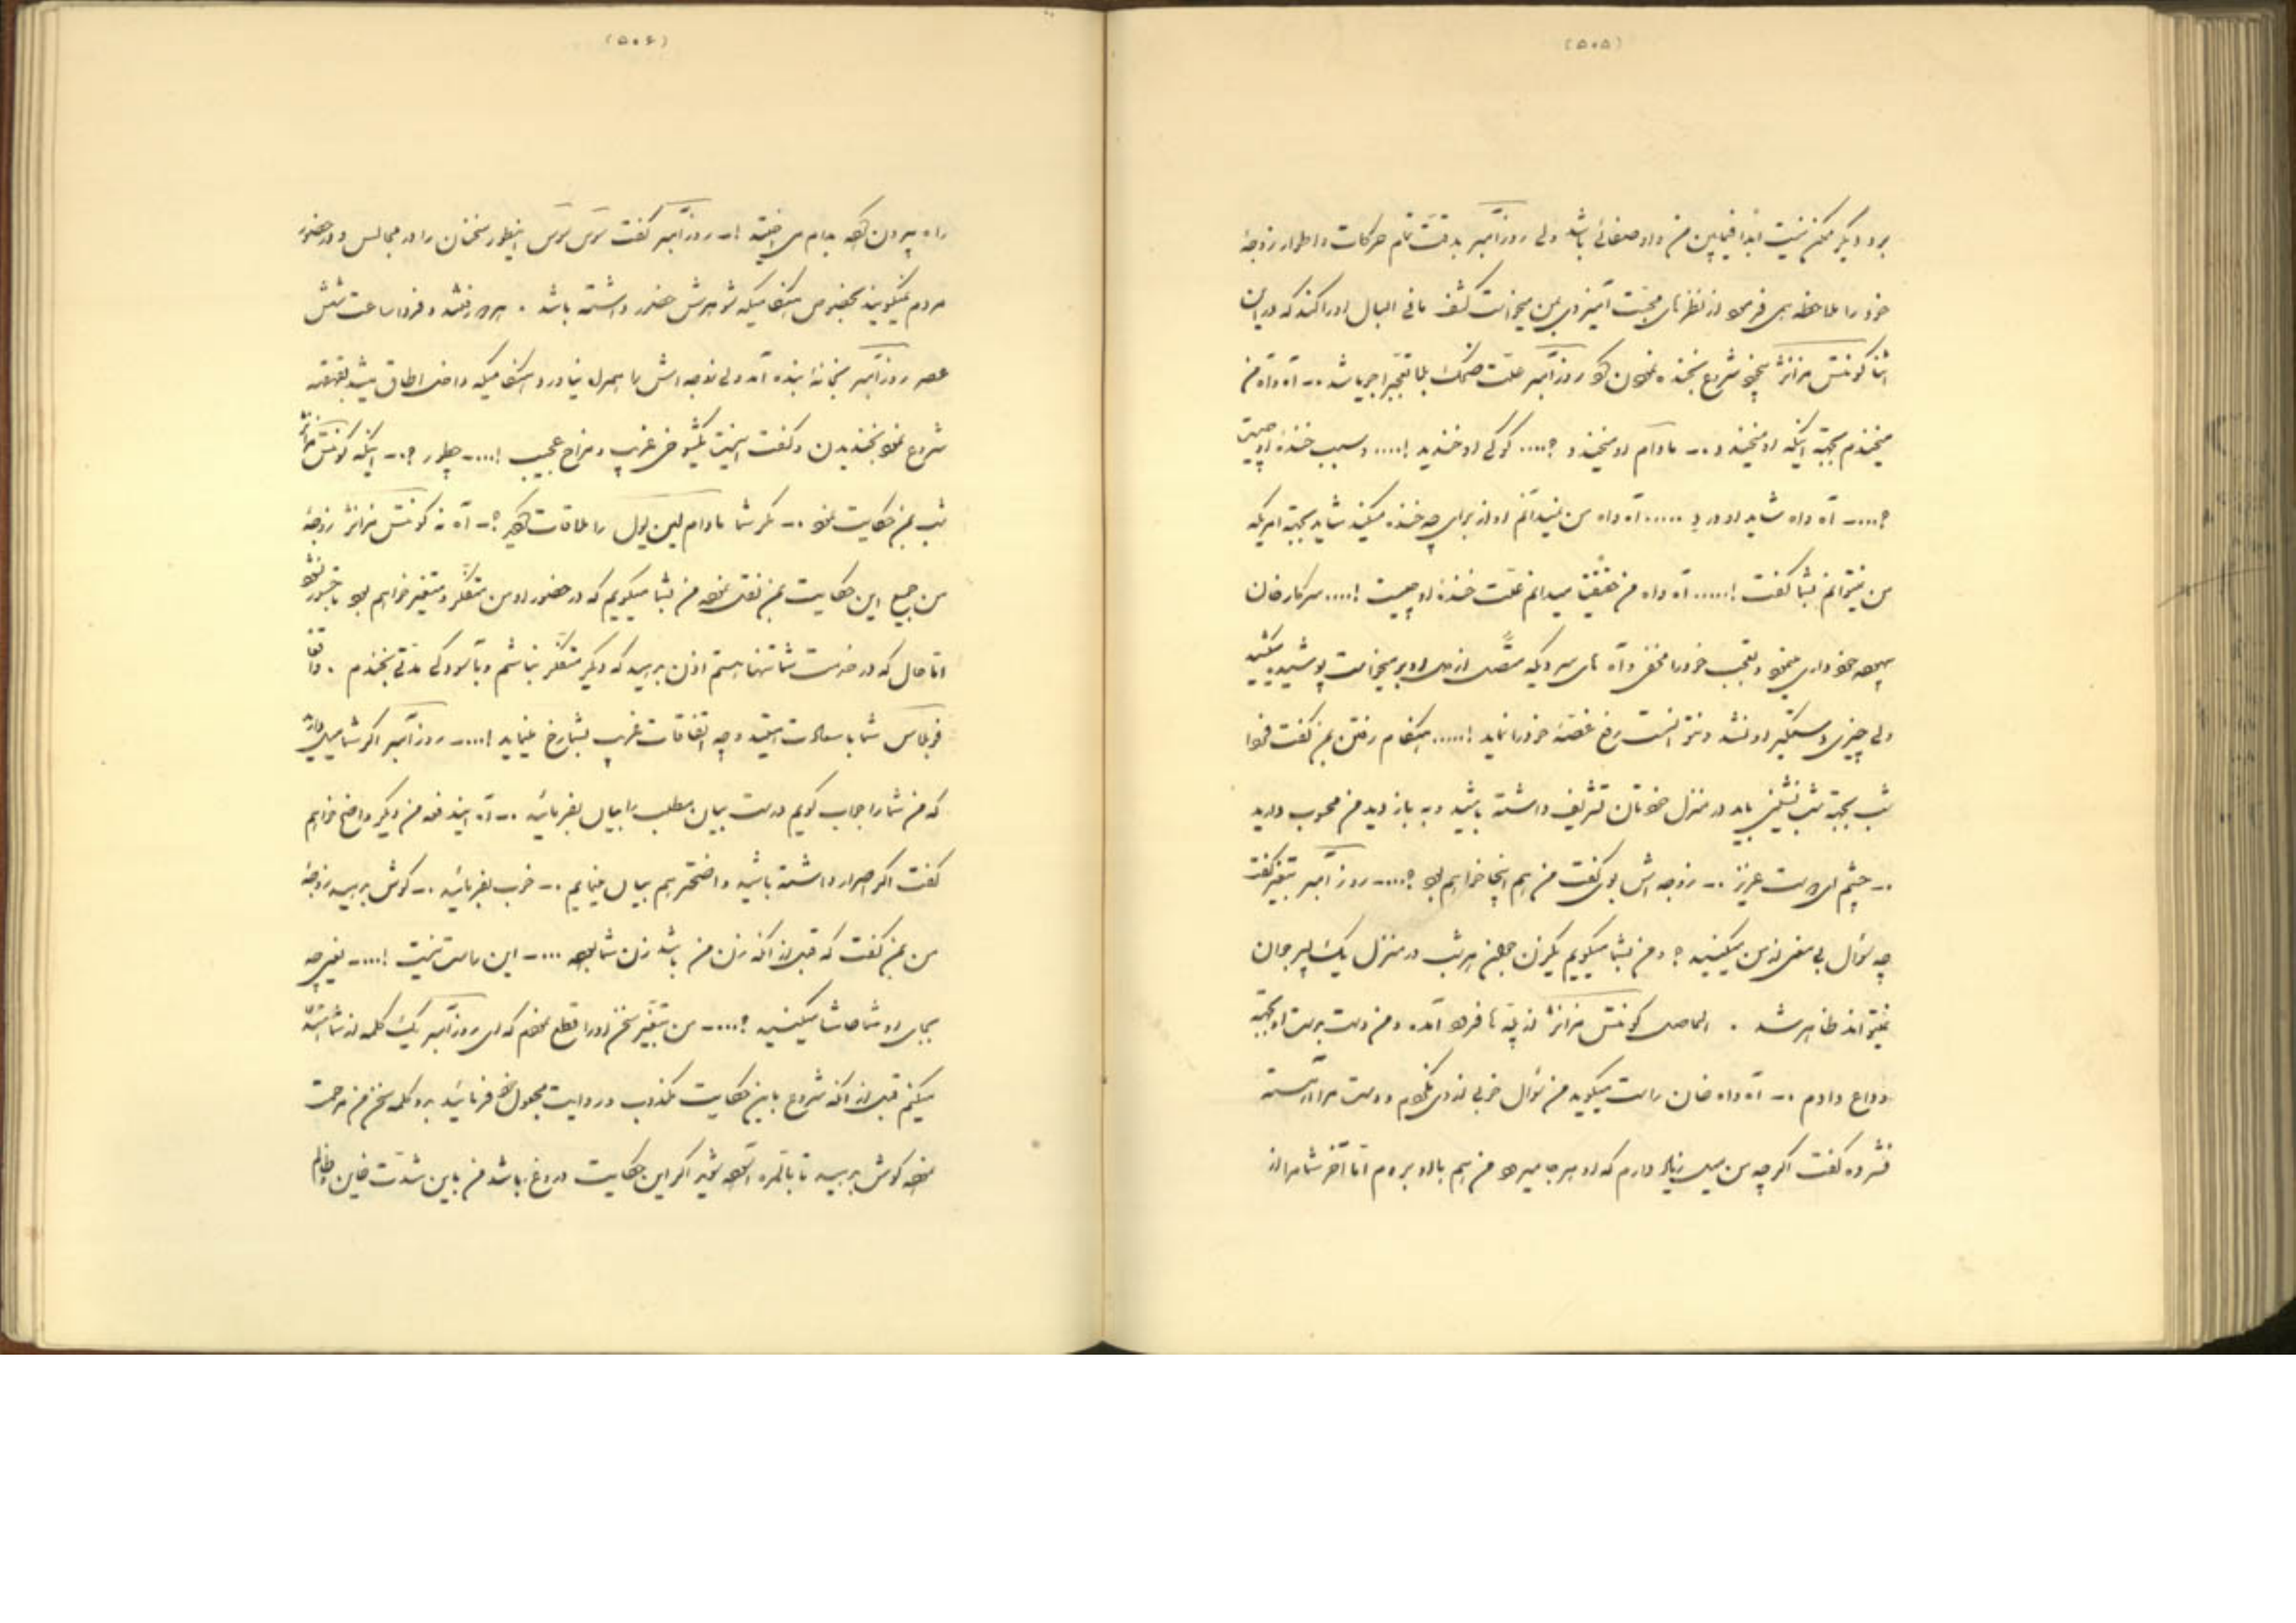 (۵۰۵)
برود دیگر ممکن نیست ابدا فیمابین من و او صفائی باشد ولی روزآمبر بدقت تمام حرکات و اطوار زوجهٔ
خود را ملاحظه می فرمود از نظرهای محبت آمیز وی بمن میخواست کشف مافی البال او را کند که در این
اثنا کونتس بخود شروع بخنده نمودن کرد روزآمبر علت ضحک را با تغیر جویا شد ـ آه واه من
میخندم بجهة اینکه او میخندد ـ مادام او میخندد ؟.... کوکی او خندید !.... و سبب خندهٔ او چیست
؟.... ـ آه واه شاید او دارد ..... آه واه من نمیدانم او از برای چه خنده میکند شاید بجهة امریکه
من نمیتوانم بشما گفت !..... آه واه من حقیقتا میدانم علت خندهٔ او چیست !.... سرکار خان
خودداری مینمود و تعجب خود را مخفی و آه های سردیکه متصل از دل او بر میخواست پوشیده میکشید
ولی چیزی دستگیر او نشد و نتوانست رفع غصهٔ خود را نماید !..... هنگام رفتن بمن گفت فردا
شب بجهة شب نشینی باید در منزل خودتان تشریف داشته باشید و به بازدید من محبوب دارید
ـ چشم ای دوست عزیز ـ زوجه اش بوی گفت من هم آنجا خواهم بود ؟.... ـ روزآمبر بتغیر گفت
چه سؤال بی معنی از من میکنید ؟ و من بشما میگویم یکزن جوان هر شب در منزل یک پسر جوان
نمیتواند ظاهر شد . الحاصل کونتس از پله ها فرود آمده و من دست بدست او بجهة
وداع دادم ـ آه واه خان راست میگوید من سؤال خوبی از وی نکردم و دست مرا آهسته
فشرده گفت اگر چه من میل زیاد دارم که او هر جا میرود من هم با او بروم اما آخر شما مرا از
(۵۰۶)
راه بیرون کرده بدام می اندازید !ـ روزآمبر گفت ترس ترس اینطور سخنان را در مجالس و در حضور
مردم نمیگویند بخصوص هنگامیکه شوهرش حضور داشته باشد . هر دو رفتند و فردا ساعت شش
عصر روزآمبر بخانهٔ بنده آمد ولی زوجه اش را همراه نیاورد و هنگامیکه داخل اطاق میشد بقهقهه
شروع نمود بخندیدن و گفت اینست یکشوخی غریب و مزاح عجیب !.... ـ چطور ؟ ـ اینکه کونتس
شب بمن حکایت نمود ـ مگر شما مادام را ملاقات کردید ؟ ـ آه نه کونتس زوجهٔ
من جمیع این حکایت بمن نقل نموده من بشما میگویم که در حضور او من متفکر و متغیر خواهم بود
اما حال که در خدمت شما تنها هستم اذن بدهید که دیگر متفکر نباشم و بآسودگی مدتی بخندم . واقعا
شما با سعادت هستید و چه اتفاقات غریب بشما رخ مینماید !.... ـ روزآمبر اگر شما میل دارید
که من شما را جواب گویم درست بیان مطلب را بیان بفرمائید ـ آه ایندفعه من دیگر واضح خواهم
گفت اگر اصرار داشته باشید واضحتر هم بیان مینمایم ـ خوب بفرمائید ـ گوش بدهید زوجهٔ
من بمن گفت که قبل از آنکه زن من باشد زن شما بوده .... ـ این راست نیست !.... ـ یعنی چه
بجای او شما حاشا میکنید ؟.... ـ من بتغیر سخن او را قطع نمودم که ای روزآمبر یک کلمه از شما استدعا
میکنم قبل از آنکه شروع باین حکایت مکذوب و روایت مجعول خود فرمائید بدو کلمه سخن من مرحمت
نموده گوش بدهید تا بالمره آسوده شوید اگر این حکایت دروغ باشد من باین شدت خاین و ظالم